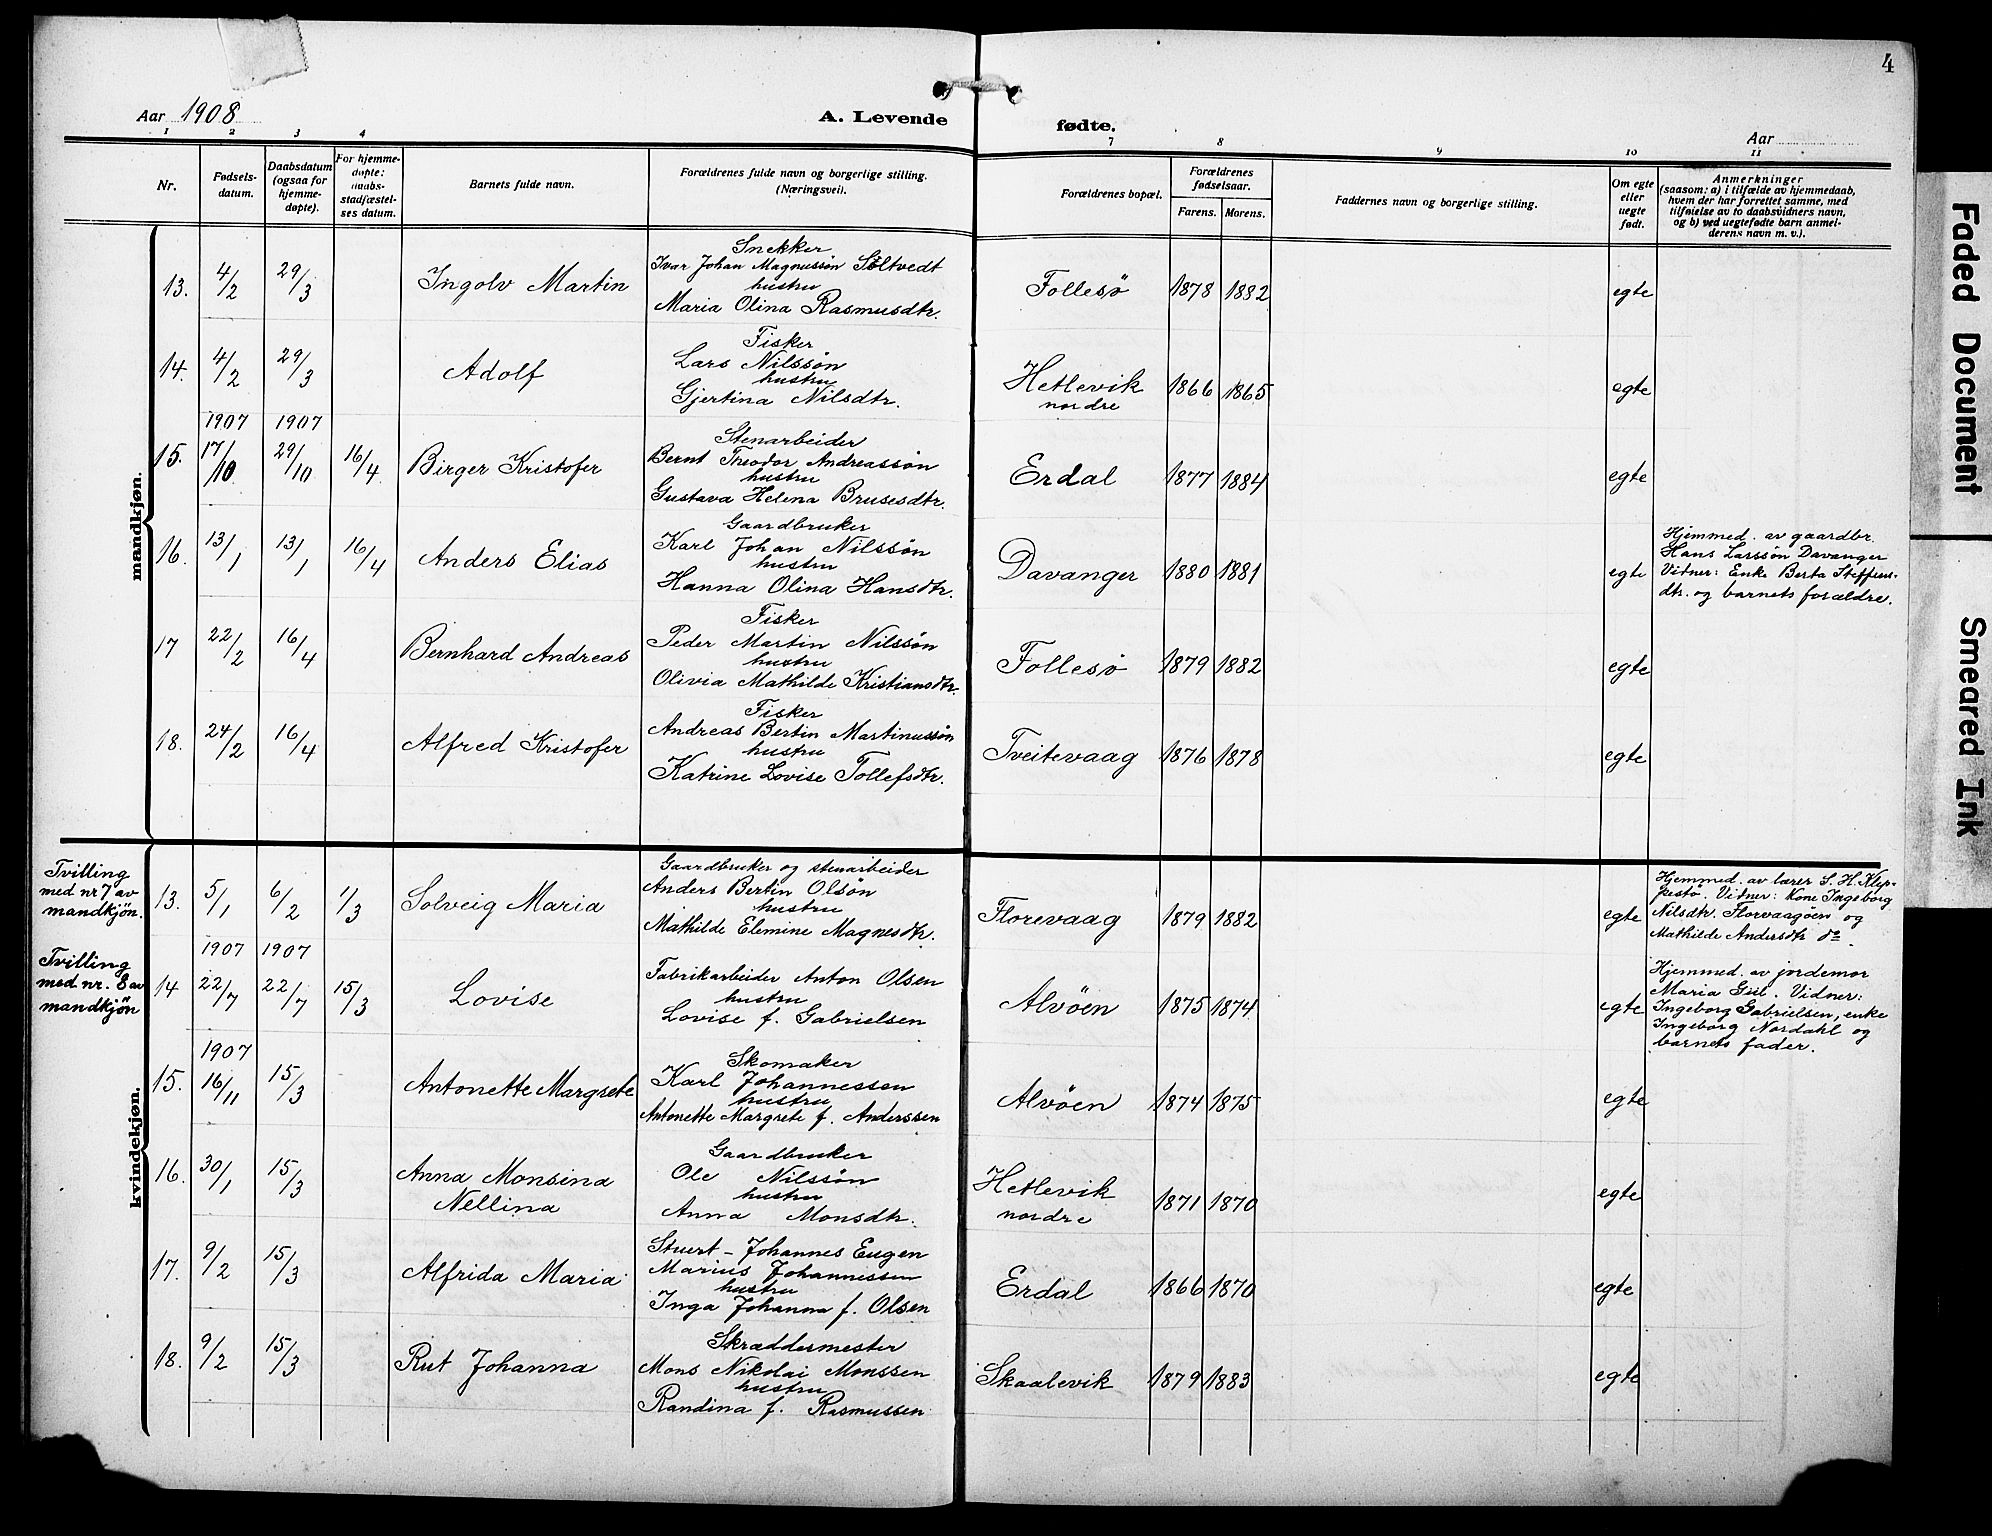 4
Aar 1908
A. Levende
fødte.
Aar
1 2 3 4 7 8 9 10 11
Nr.
Fødsels-
datum.
Daabsdatum
(ogsaa for
hjemme-
døpte).
For hjemme-
døpte:
daabs-
stadfæstel-
ses datum.
Barnets fulde navn.
Forældrenes fulde navn og borgerlige stilling.
(Næringsvei).
Forældrenes bopæl.
Forældrenes
fødselsaar.
Farens. Morens.
Faddernes navn og borgerlige stilling.
Om egte
eller
uegte
født.
Anmerkninger
(saasom: a) i tilfælde av hjemmedaab,
hvem der har forrettet samme, med
tilføielse av to daabsvidners navn,
og b) ved uegtefødte barn anmel-
derens navn m. v.).
mandkjøn.
Snekker
13. 4/2 29/3 Ingolv Martin Ivar Johan Magnussøn Søltvedt Follesø 1878 1882 egte
hustru
Maria Olina Rasmusdtr.
Fisker
14. 4/2 29/3 Adolf Lars Nilssøn Hetlevik 1866 1865 egte
hustru nordre
Gjertina Nilsdtr.
1907 1907
Stenarbeider
15. 17/10 29/10 16/4 Birger Kristofer Bernt Theodor Andreassøn Erdal 1877 1884 egte
hustru
Gustava Helena Brusesdtr.
Gaardbruker
16. 13/1 13/1 16/4 Anders Elias Karl Johan Nilssøn Davanger 1880 1881 egte
hustru
Hanna Olina Hansdtr.
Hjemmed. av gaardbr.
Hans Larssøn Davanger
Vitner: Enke Berta Steffens-
dtr. og barnets forældre.
Fisker
17 22/2 16/4 Bernhard Andreas Peder Martin Nilssøn Follesø 1879 1882 egte
hustru
Olivia Mathilde Kristiansdtr.
Fisker
18. 24/2 16/4 Alfred Kristofer Andreas Bertin Martinussøn Tveitevaag 1876 1878 egte
hustru
Katrine Lovise Tollefsdtr.
kvindekjøn.
Tvilling
med nr 7 av
mandkjøn.
Gaardbruker og stenarbeider
13. 5/1 6/2 1/3 Solveig Maria Anders Bertin Olsøn Florevaag 1879 1882 egte
hustru
Mathilde Elemine Magnesdtr.
Hjemmed. av lærer S. H. Klep-
pestø. Vitner: Kone Ingeborg
Nilsdtr. Florvaagøen og
Mathilde Andersdtr do.
Tvilling
med nr. 8 av
mandkjøn
1907 1907
14 22/7 22/7 15/3 Lovise Fabrikarbeider Anton Olsen Alvøen 1875 1874 egte
hustru
Lovise f. Gabrielsen
Hjemmed. av jordemor
Maria Giil. Vidner:
Ingeborg Gabrielsen, enke
Ingeborg Nordahl og
barnets fader.
1907
Skomaker
15. 16/11 15/3 Antonette Margrete Karl Johannessen Alvøen 1874 1875 egte
hustru
Antonette Margrete f. Anderssen
Gaardbruker
16. 30/1 15/3 Anna Monsina Ole Nilssøn Hetlevik 1871 1870 egte
Nellina hustru nordre
Anna Monsdtr.
17. 9/2 15/3 Alfrida Maria Stuert - Johannes Eugen Erdal 1866 1870 egte
Marius Johannessen
hustru
Inga Johanna f. Olsen
Skræddermester
18. 9/2 15/3 Rut Johanna Mons Nikolai Monssen Skaalevik 1879 1883 egte
hustru
Randina f. Rasmussen
Faded Document
Smeared Ink